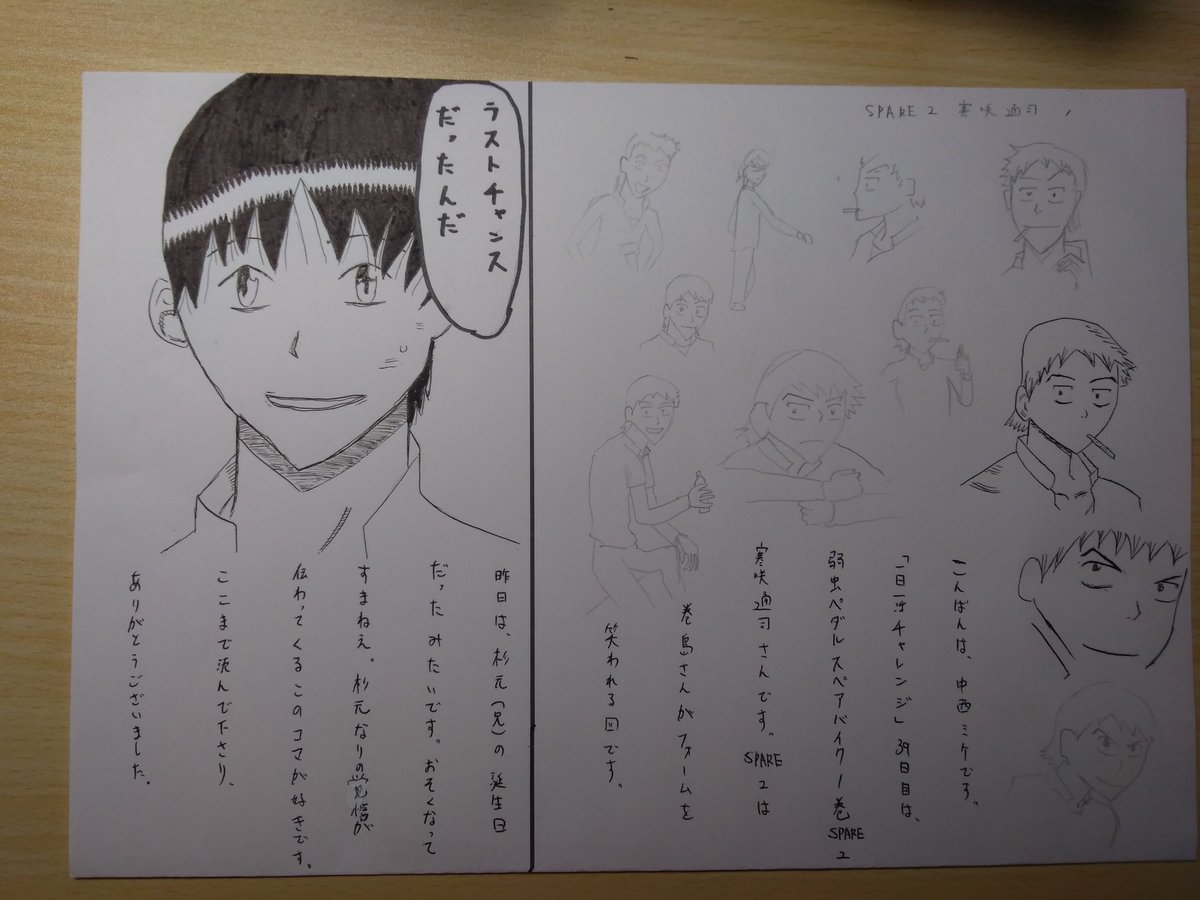 SPARE 2 寒咲通司
こんばんは、中西ミケです。
「一日一弔チャレンジ」39日目は、
弱虫ペダルスペアバイク1巻SPARE2
寒咲通司さんです。SPARE2は
巻島さんがフォームを
笑われる回です。
ラストチャンス
だったんだ
昨日は、杉元(兄)の誕生日
だったみたいです。おそくなって
すまねえ。杉元なりの覚悟が
伝わってくるこのコマが好きです。
ここまで読んでくださり、
ありがとうございました。